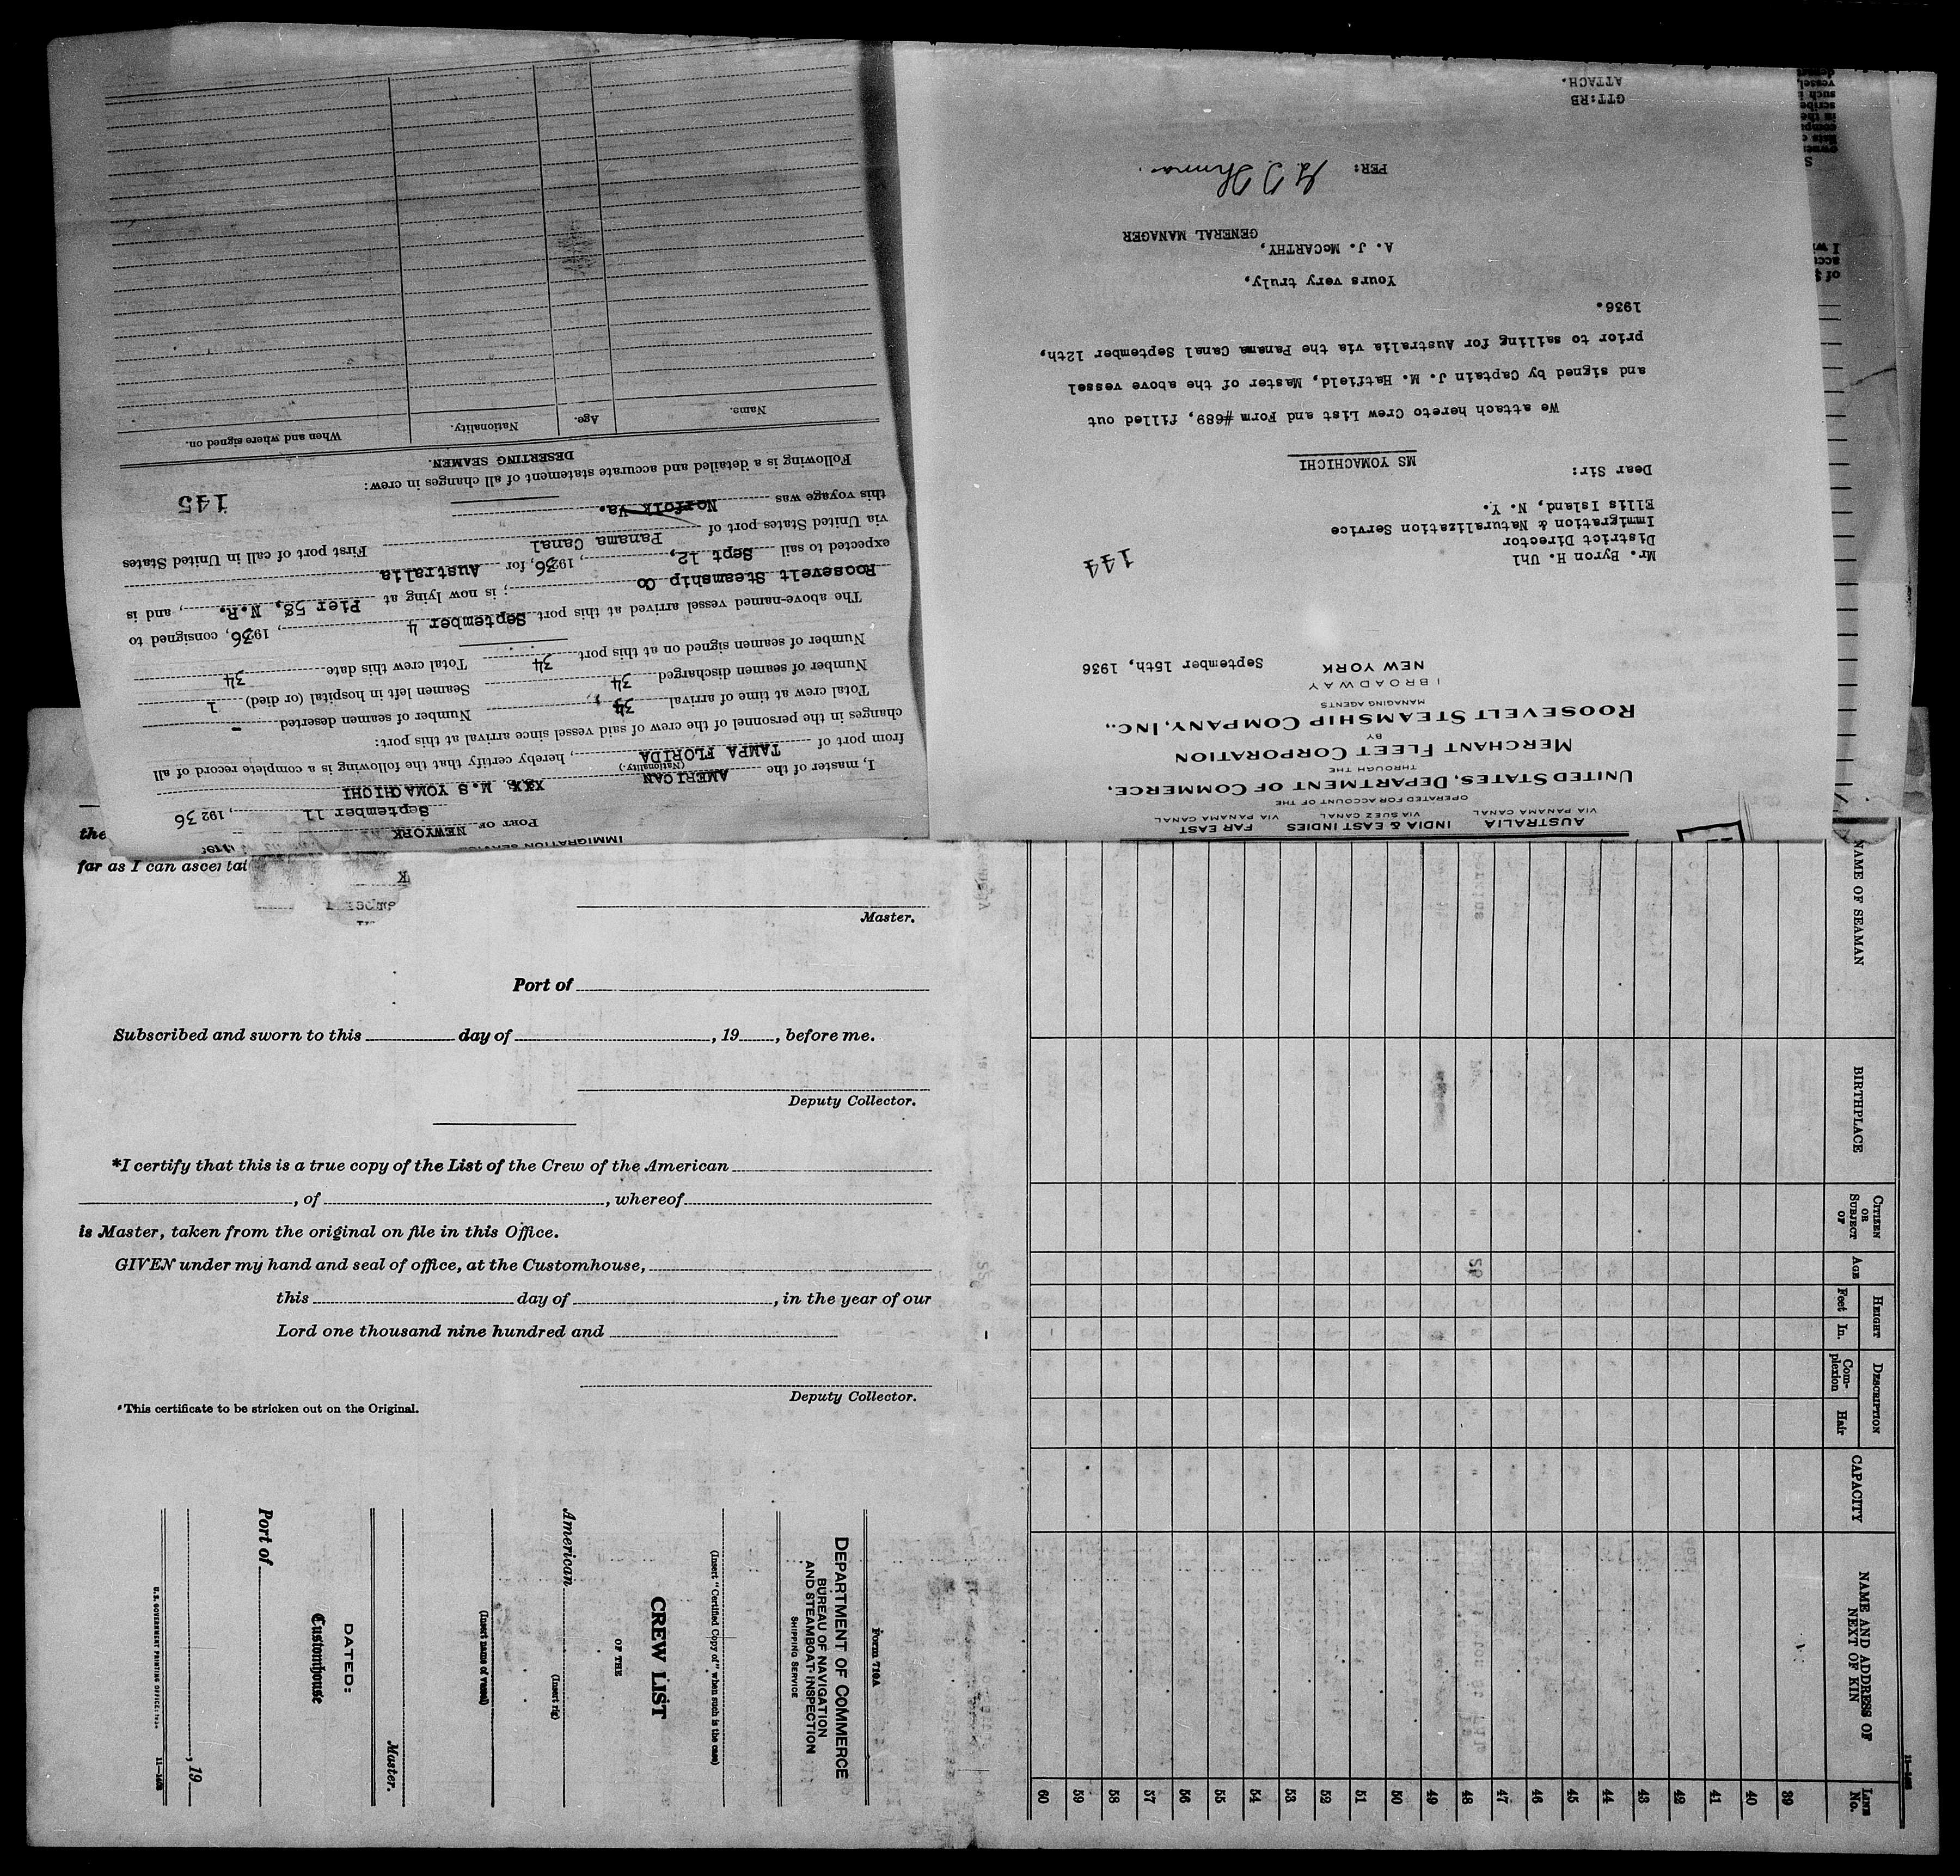 AUSTRALIA INDIA & EAST INDIES FAR EAST
VIA PANAMA CANAL VIA SUEZ CANAL VIA PANAMA CANAL
OPERATED FOR ACCOUNT OF THE
UNITED STATES, DEPARTMENT OF COMMERCE,
THROUGH THE
MERCHANT FLEET CORPORATION
BY
ROOSEVELT STEAMSHIP COMPANY, INC.,
MANAGING AGENTS
1 BROADWAY
NEW YORK September 15th, 1936
144
Mr. Byron H. Uhl
District Director
Immigration & Naturalization Service
Ellis Island, N. Y.
Dear Sir:
MS YOMACHICHI
We attach hereto Crew List and Form #689, filled out
and signed by Captain J. M. Hatfield, Master of the above vessel
prior to sailing for Australia via the Panama Canal September 12th,
1936.
Yours very truly,
A. J. McCARTHY,
GENERAL MANAGER
PER:
GTT:RB
ATTACH.
IMMIGRATION SERVICE
PORT OF NEWYORK
September 11, 192 36
I, master of the AMERICAN XXX. M.S YOMACHICHI
(Nationality.)
from port of TAMPA FLORIDA, hereby certify that the following is a complete record of all
changes in the personnel of the crew of said vessel since arrival at this port:
Total crew at time of arrival 34 Number of seamen deserted -
Number of seamen discharged 34 Seamen left in hospital (or died) 1
Number of seamen signed on at this port 34 Total crew this date 34
The above-named vessel arrived at this port September 4, 1936, consigned to
Roosevelt Steamship Co; is now lying at Pier 58, N.R., and is
expected to sail Sept 12, 1936, for Australia
via United States port of Panama Canal First port of call in United States
this voyage was Norfolk Va.
145
Following is a detailed and accurate statement of all changes in crew:
DESERTING SEAMEN.
Name. Age. Nationality. When and where signed on.
the
far as I can ascertai
Master.
Port of
Subscribed and sworn to this day of , 19 , before me.
Deputy Collector.
*I certify that this is a true copy of the List of the Crew of the American
, of , whereof
is Master, taken from the original on file in this Office.
GIVEN under my hand and seal of office, at the Customhouse,
this day of , in the year of our
Lord one thousand nine hundred and
Deputy Collector.
*This certificate to be stricken out on the Original.
Form 710A
DEPARTMENT OF COMMERCE
BUREAU OF NAVIGATION
AND STEAMBOAT INSPECTION
SHIPPING SERVICE
(Insert "Certified Copy of" when such is the case)
CREW LIST
OF THE
American
(Insert rig)
(Insert name of vessel)
Master.
DATED:
Customhouse
Port of
, 19
U.S. GOVERNMENT PRINTING OFFICE: 1934
NAME OF SEAMAN
BIRTHPLACE
CITIZEN OR SUBJECT OF
AGE
HEIGHT
Feet In.
DESCRIPTION
Complexion Hair
CAPACITY
NAME AND ADDRESS OF NEXT OF KIN
LINE No.
39
40
41
42
43
44
45
46
47
48
49
50
51
52
53
54
55
56
57
58
59
60